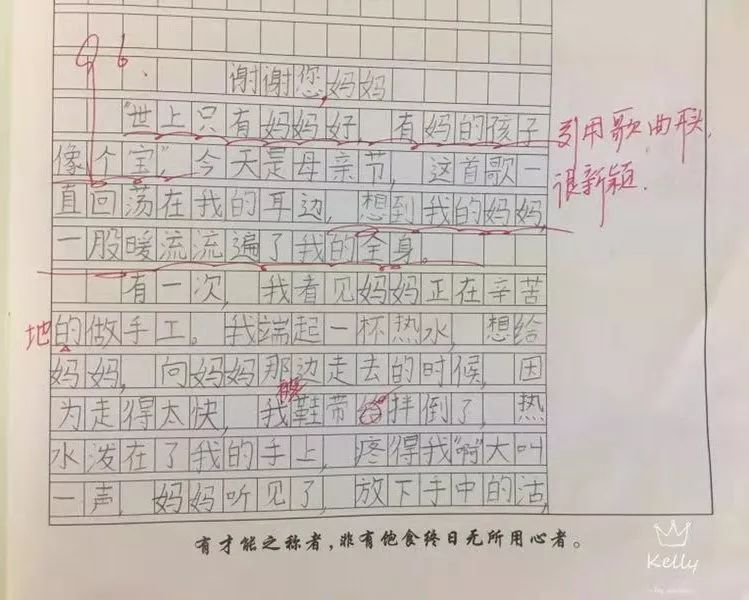 96.
谢谢您,妈妈
“世上只有妈妈好, 有妈的孩子
像个宝”,今天是母亲节, 这首歌一
直回荡在我的耳边, 想到我的妈妈,
一股暖流流遍了我的全身。
有一次, 我看见妈妈正在辛苦
的做手工。我端起一杯热水, 想给
妈妈, 向妈妈那边走去的时候, 因
为走得太快, 我鞋带 拌倒了, 热
水泼在了我的手上, 疼得我“啊”大叫
一声, 妈妈听见了, 放下手中的活,
引用歌曲开头,
很新颖.
地
被
有才能之称者,非有饱食终日无所用心者。
Kelly